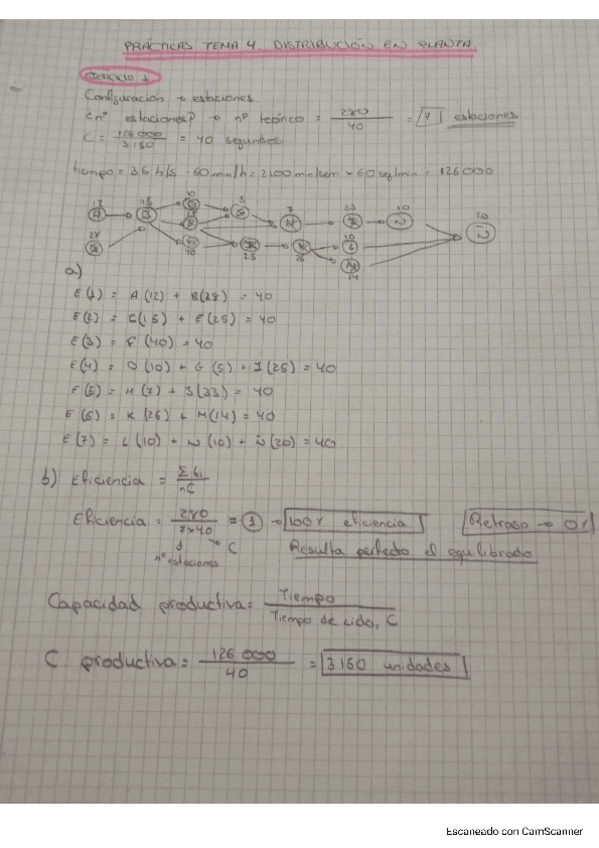 PRÁCTICAS TEMA 4. DISTRIBUCIÓN EN PLANTA
EJERCICIO 1
Configuración → estaciones
¿nº estaciones? → nº teórico = 280 / 40 = 7 estaciones
C = 126 000 / 3.150 = 40 segundos
tiempo = 35 h/s · 60 min/h = 2100 min/sem × 60 sg/min = 126000
a)
E(1) = A(12) + B(28) = 40
E(2) = C(15) + E(25) = 40
E(3) = F(40) = 40
E(4) = D(10) + G(5) + I(25) = 40
E(5) = H(7) + J(33) = 40
E(6) = K(26) + M(14) = 40
E(7) = L(10) + N(10) + Ñ(20) = 40
b) Eficiencia = Σti / nC
Eficiencia = 280 / 7×40 = 1 → 100% eficiencia Retraso → 0%
nº estaciones C Resulta perfecto el equilibrado
Capacidad productiva = Tiempo / Tiempo de ciclo, C
C productiva = 126 000 / 40 = 3150 unidades
Escaneado con CamScanner